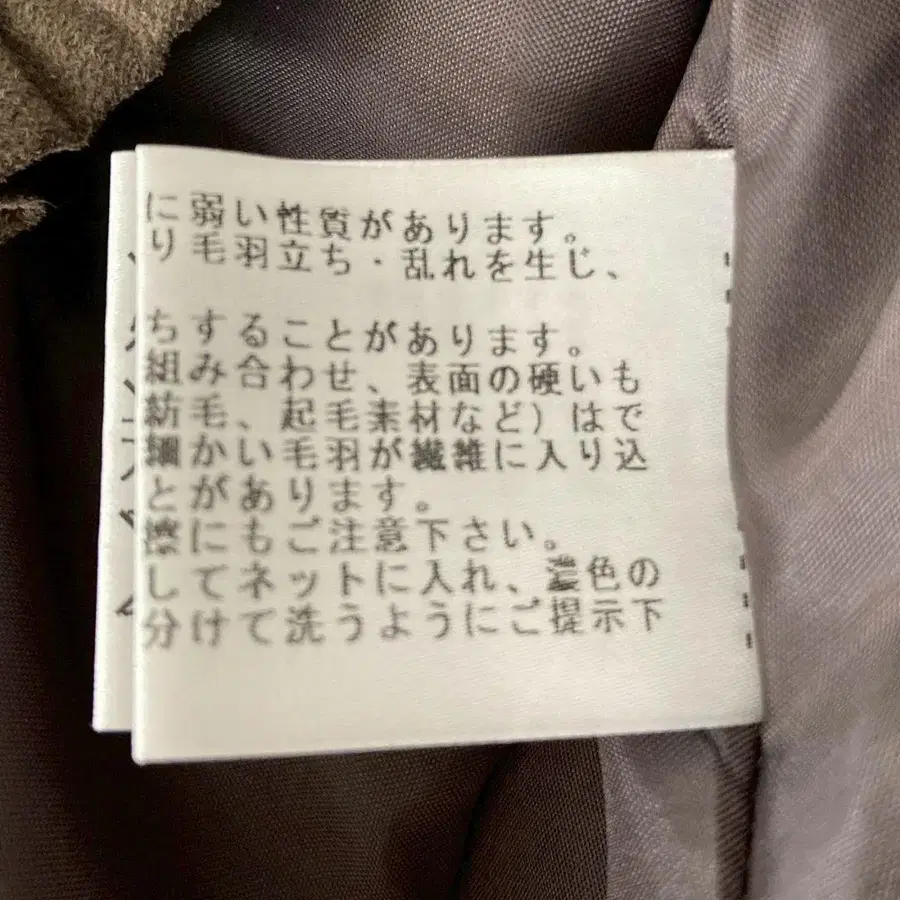 に弱い性質があります。
り毛羽立ち・乱れを生じ、
ちすることがあります。
組み合わせ、表面の硬いも
紡毛、起毛素材など）はで
細かい毛羽が繊維に入り込
とがあります。
擦にもご注意下さい。
してネットに入れ、濃色の
分けて洗うようにご提示下